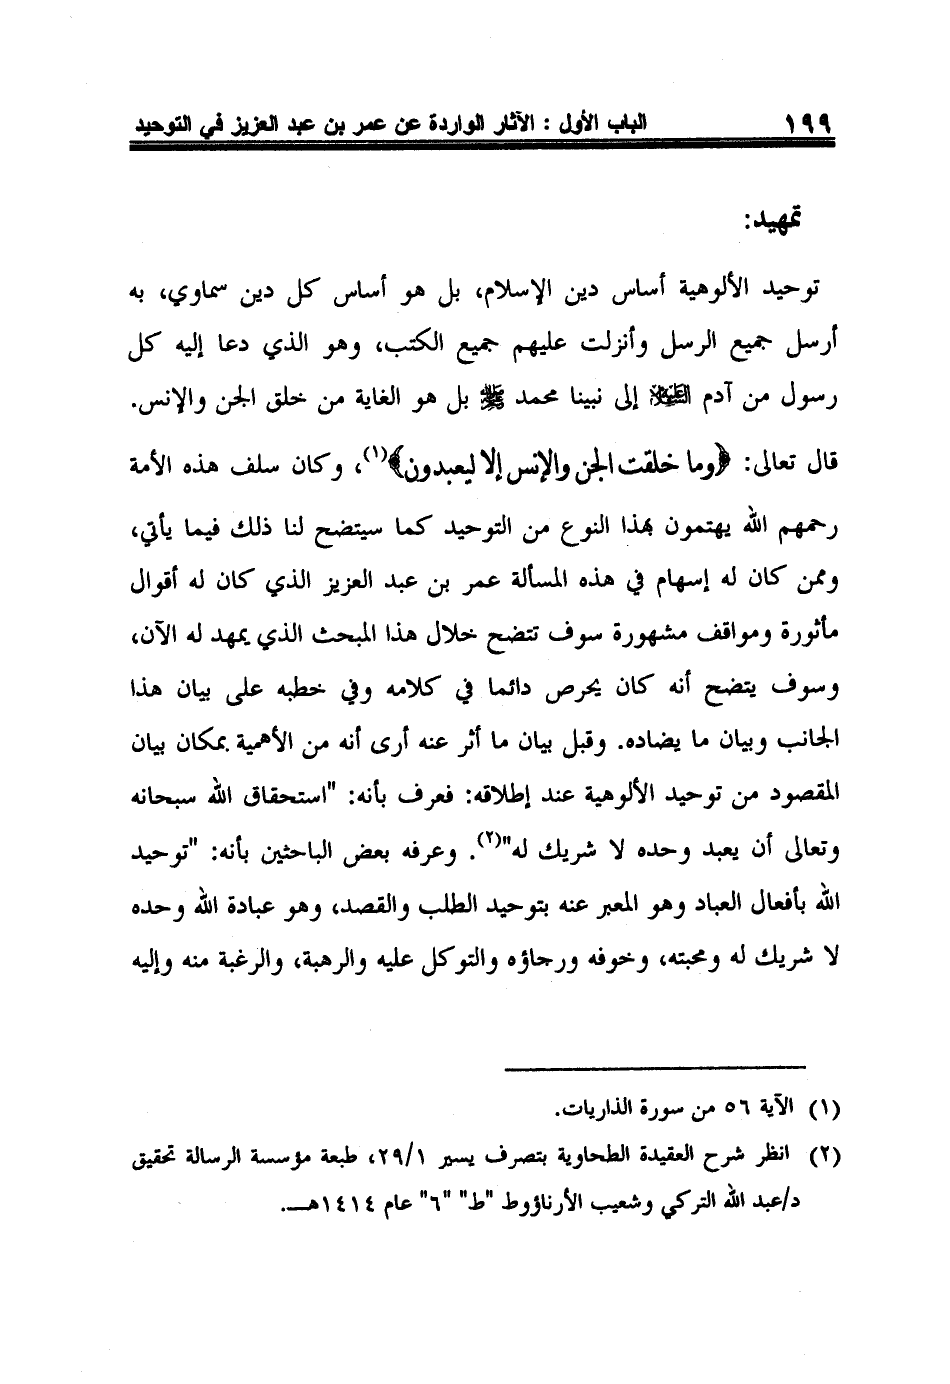 ١٩٩ الباب الأول : الآثار الواردة عن عمر بن عبد العزيز في التوحيد
تمهيد:
توحيد الألوهية أساس دين الإسلام، بل هو أساس كل دين سماوي، به
أرسل جميع الرسل وأنزلت عليهم جميع الكتب، وهو الذي دعا إليه كل
رسول من آدم العليه السلام إلى نبينا محمد ﷺ بل هو الغاية من خلق الجن والإنس.
قال تعالى: ﴿وما خلقت الجن والإنس إلا ليعبدون﴾(١)، وكان سلف هذه الأمة
رحمهم الله يهتمون بهذا النوع من التوحيد كما سيتضح لنا ذلك فيما يأتي،
وممن كان له إسهام في هذه المسألة عمر بن عبد العزيز الذي كان له أقوال
مأثورة ومواقف مشهورة سوف تتضح خلال هذا المبحث الذي يمهد له الآن،
وسوف يتضح أنه كان يحرص دائما في كلامه وفي خطبه على بيان هذا
الجانب وبيان ما يضاده. وقبل بيان ما أثر عنه أرى أنه من الأهمية بمكان بيان
المقصود من توحيد الألوهية عند إطلاقه: فعرف بأنه: "استحقاق الله سبحانه
وتعالى أن يعبد وحده لا شريك له"(٢). وعرفه بعض الباحثين بأنه: "توحيد
الله بأفعال العباد وهو المعبر عنه بتوحيد الطلب والقصد، وهو عبادة الله وحده
لا شريك له ومحبته، وخوفه ورجاؤه والتوكل عليه والرهبة، والرغبة منه وإليه
(١) الآية ٥٦ من سورة الذاريات.
(٢) انظر شرح العقيدة الطحاوية بتصرف يسير ٢٩/١، طبعة مؤسسة الرسالة تحقيق
د/عبد الله التركي وشعيب الأرناؤوط "ط" "٦" عام ١٤١٤هــ.